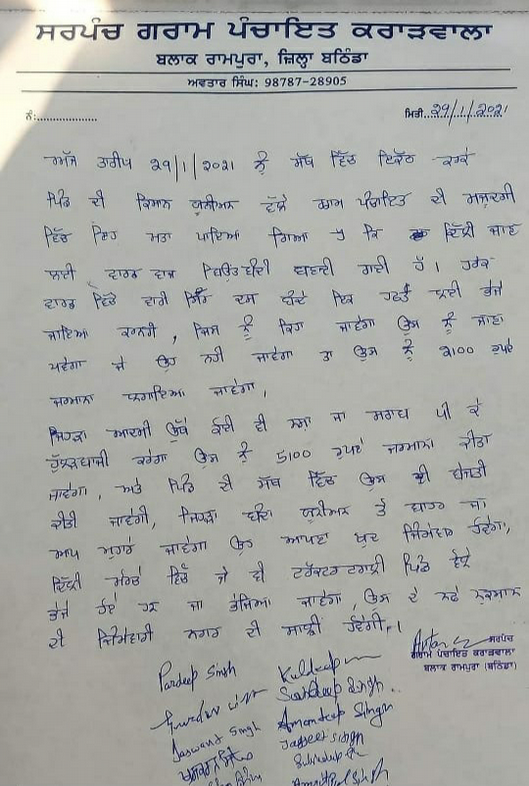 ਸਰਪੰਚ ਗਰਾਮ ਪੰਚਾਇਤ ਕਰਾੜਵਾਲਾ
ਬਲਾਕ ਰਾਮਪੁਰਾ, ਜ਼ਿਲ੍ਹਾ ਬਠਿੰਡਾ
ਅਵਤਾਰ ਸਿੰਘ: 98787-28905
ਨੰ:..................
ਮਿਤੀ..29/1/2021
ਅੱਜ ਤਾਰੀਖ 29/1/2021 ਨੂੰ ਸੱਥ ਵਿੱਚ ਇਕੱਠ ਕਰਕੇ
ਪਿੰਡ ਦੀ ਕਿਸਾਨ ਯੂਨੀਅਨ ਵੱਲੋਂ ਗਰਾਮ ਪੰਚਾਇਤ ਦੀ ਮਜੂਦਗੀ
ਵਿੱਚ ਇਹ ਮਤਾ ਪਾਇਆ ਗਿਆ ਹੈ ਕਿ ਦਿੱਲੀ ਜਾਣ
ਲਈ ਵਾਰਡ ਵਾਜ ਬਣਾਈ ਗਈ ਹੈ। ਹਰੇਕ
ਵਾਰਡ ਵਿੱਚੋਂ ਵਾਰੀ ਸਿਰ ਦਸ ਬੰਦੇ ਇਕ ਹਫਤੇ ਲਈ ਭੇਜੇ
ਜਾਇਆ ਕਰਨਗੇ, ਜਿਸ ਨੂੰ ਕਿਹਾ ਜਾਵੇਗਾ ਉਸ ਨੂੰ ਜਾਣਾ
ਪਵੇਗਾ ਜੇ ਉਹ ਨਹੀ ਜਾਵੇਗਾ ਤਾ ਉਸ ਨੂੰ 2100 ਰੁਪਏ
ਜਰਮਾਨਾ ਲਗਾਇਆ ਜਾਵੇਗਾ,
ਜਿਹੜਾ ਆਦਮੀ ਉੱਥੇ ਕੋਈ ਵੀ ਨਸ਼ਾ ਜਾ ਸਰਾਬ ਪੀ ਕੇ
ਹੁੱਲੜਬਾਜੀ ਕਰੇਗਾ ਉਸ ਨੂੰ 5100 ਰੁਪਏ ਜਰਮਾਨਾ ਕੀਤਾ
ਜਾਵੇਗਾ, ਅਤੇ ਪਿੰਡ ਦੀ ਸੱਥ ਵਿੱਚ ਉਸ ਦੀ ਬੇਜਤੀ
ਕੀਤੀ ਜਾਵੇਗੀ, ਜਿਹੜਾ ਬੰਦਾ ਯੂਨੀਅਨ ਤੋਂ ਬਾਹਰ ਜਾ
ਆਪ ਮੁਹਾਰੇ ਜਾਵੇਗਾ ਉਹ ਆਪਣਾ ਖੁਦ ਜਿੰਮੇਵਾਰ ਹੋਵੇਗਾ,
ਦਿੱਲੀ ਮੋਰਚੇ ਵਿੱਚ ਜੋ ਵੀ ਟਰੈਕਟਰ ਟਰਾਲੀ ਪਿੰਡ ਵੱਲੋਂ
ਭੇਜੇ ਹੋਏ ਹਨ ਜਾ ਭੇਜਿਆ ਜਾਵੇਗਾ, ਉਸ ਦੇ ਨਫੇ ਨੁਕਸਾਨ
ਦੀ ਜਿੰਮੇਵਾਰੀ ਨਗਰ ਦੀ ਸਾਂਝੀ ਹੋਵੇਗੀ।
ਸਰਪੰਚ
ਗਰਾਮ ਪੰਚਾਇਤ ਕਰਾੜਵਾਲਾ
ਬਲਾਕ ਰਾਮਪੁਰਾ (ਬਠਿੰਡਾ)
Pardeep Singh Kuldeep
Sukhdeep Singh
Jaswant Singh Amandeep Singh
Jagseet Singh